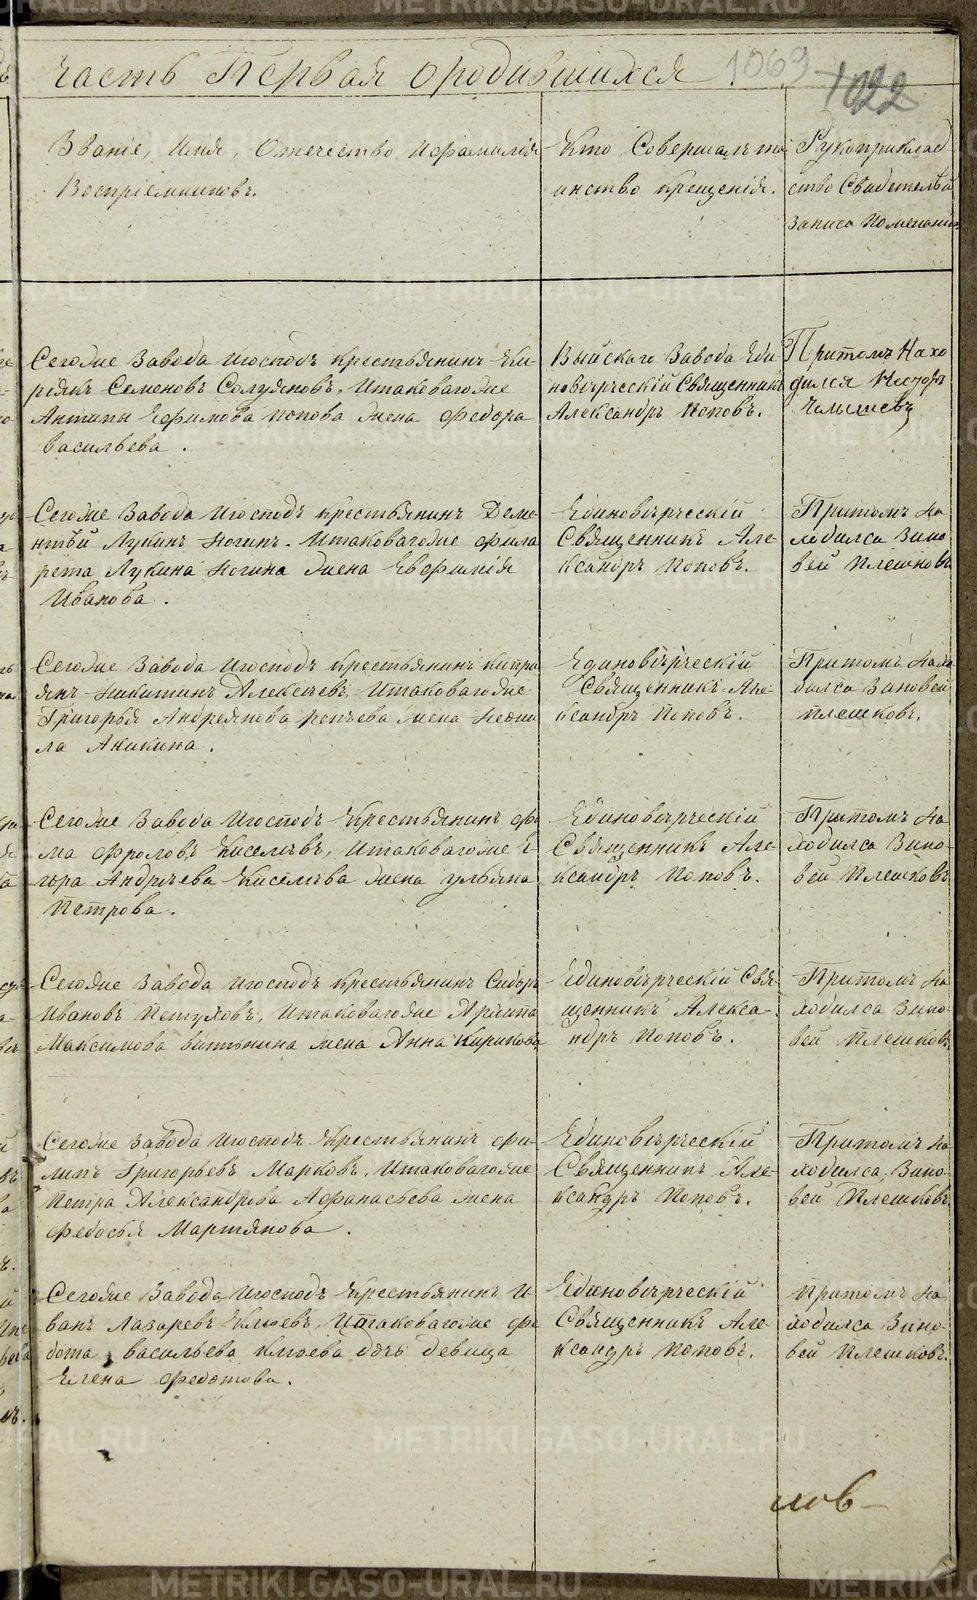 METRIKI.GASO-URAL.RU
Часть Первая о родившихся
1069
1022
Званіе, Имя, Отчество, И фамилія
Воспріемниковъ.
Кто Совершалъ та
инство крещенія.
Рукоприклад
ство Свидетелей
записа
Сегоже Завода Игосподъ крестьянинъ Ки-
ріякъ Семеновъ Солуяновъ. Итаковагоже
Антипы Ефимова попова жена федора
Васильева.
Выйскаго Завода Еди
новѣрческій Священникъ
Александръ Поповъ.
Притомъ Нахо
дился Несторъ
Челышевъ
Сегоже Завода Игосподъ крестьянинъ Деме
нтѣй Лукинъ Ногинъ. Итаковагоже фила
рета Лукина Ногина жена Евфимія
Иванова.
Единовѣрческій
Священникъ Але-
ксандръ Поповъ.
Притомъ На
ходился Зино
вей Плешковъ
Сегоже Завода Игосподъ крестьянинъ Кипри
янъ Никитинъ Алексѣевъ, Итаковагоже
Григорья Андреянова репьева жена Неони
ла Аникина.
Единовѣрческій
Священникъ Але-
ксандръ Поповъ.
Притомъ Нахо
дился Зиновей
Плешковъ.
Сегоже Завода Игосподъ Крестьянинъ фо
ма фроловъ Киселевъ, Итаковагоже Е
гора Андреева Киселева жена ульяна
Петрова.
Единовѣрческій
Священникъ Але-
ксандръ Поповъ.
Притомъ На
ходился Зино
вей Плешковъ
Сегоже Завода Игосподъ крестьянинъ Сидоръ
Ивановъ Петуховъ, Итаковагоже
Максимова жена Анна Кирилова
Единовѣрческій Свя-
щенникъ Алекса-
ндръ Поповъ.
Притомъ На
ходился Зино
вей Плешковъ
Сегоже Завода Игосподъ Крестьянинъ фи-
липъ Григорьевъ Марковъ, Итаковагоже
Петра Александрова Афанасьева жена
федосья Мартянова.
Единовѣрческій
Священникъ Але-
ксандръ Поповъ.
Притомъ На
ходился Зино
вей Плешковъ.
Сегоже Завода Игосподъ Крестьянинъ И-
ванъ Лазаревъ Клюевъ, Итаковагоже фе
дота васильева клюева дочь девица
Елена федотова.
Единовѣрческій
Священникъ Але-
ксандръ Поповъ.
Притомъ На
ходился Зино
вей Плешковъ.
повъ
METRIKI.GASO-URAL.RU